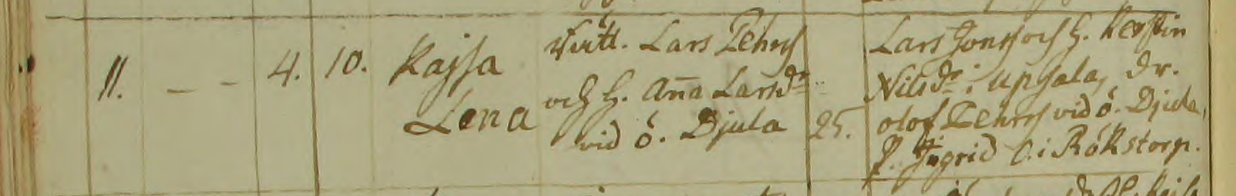 11. — — 4. 10. Kajsa
Lena
Lars Pehrs
och H. Anna Larsdr
vid ö. Djula 25.
Lars Jons och H. Kerstin
Nilsdr i Upsala, Dr.
Olof Pehrs vid ö. Djula,
P. Ingrid O. i Rökstorp.